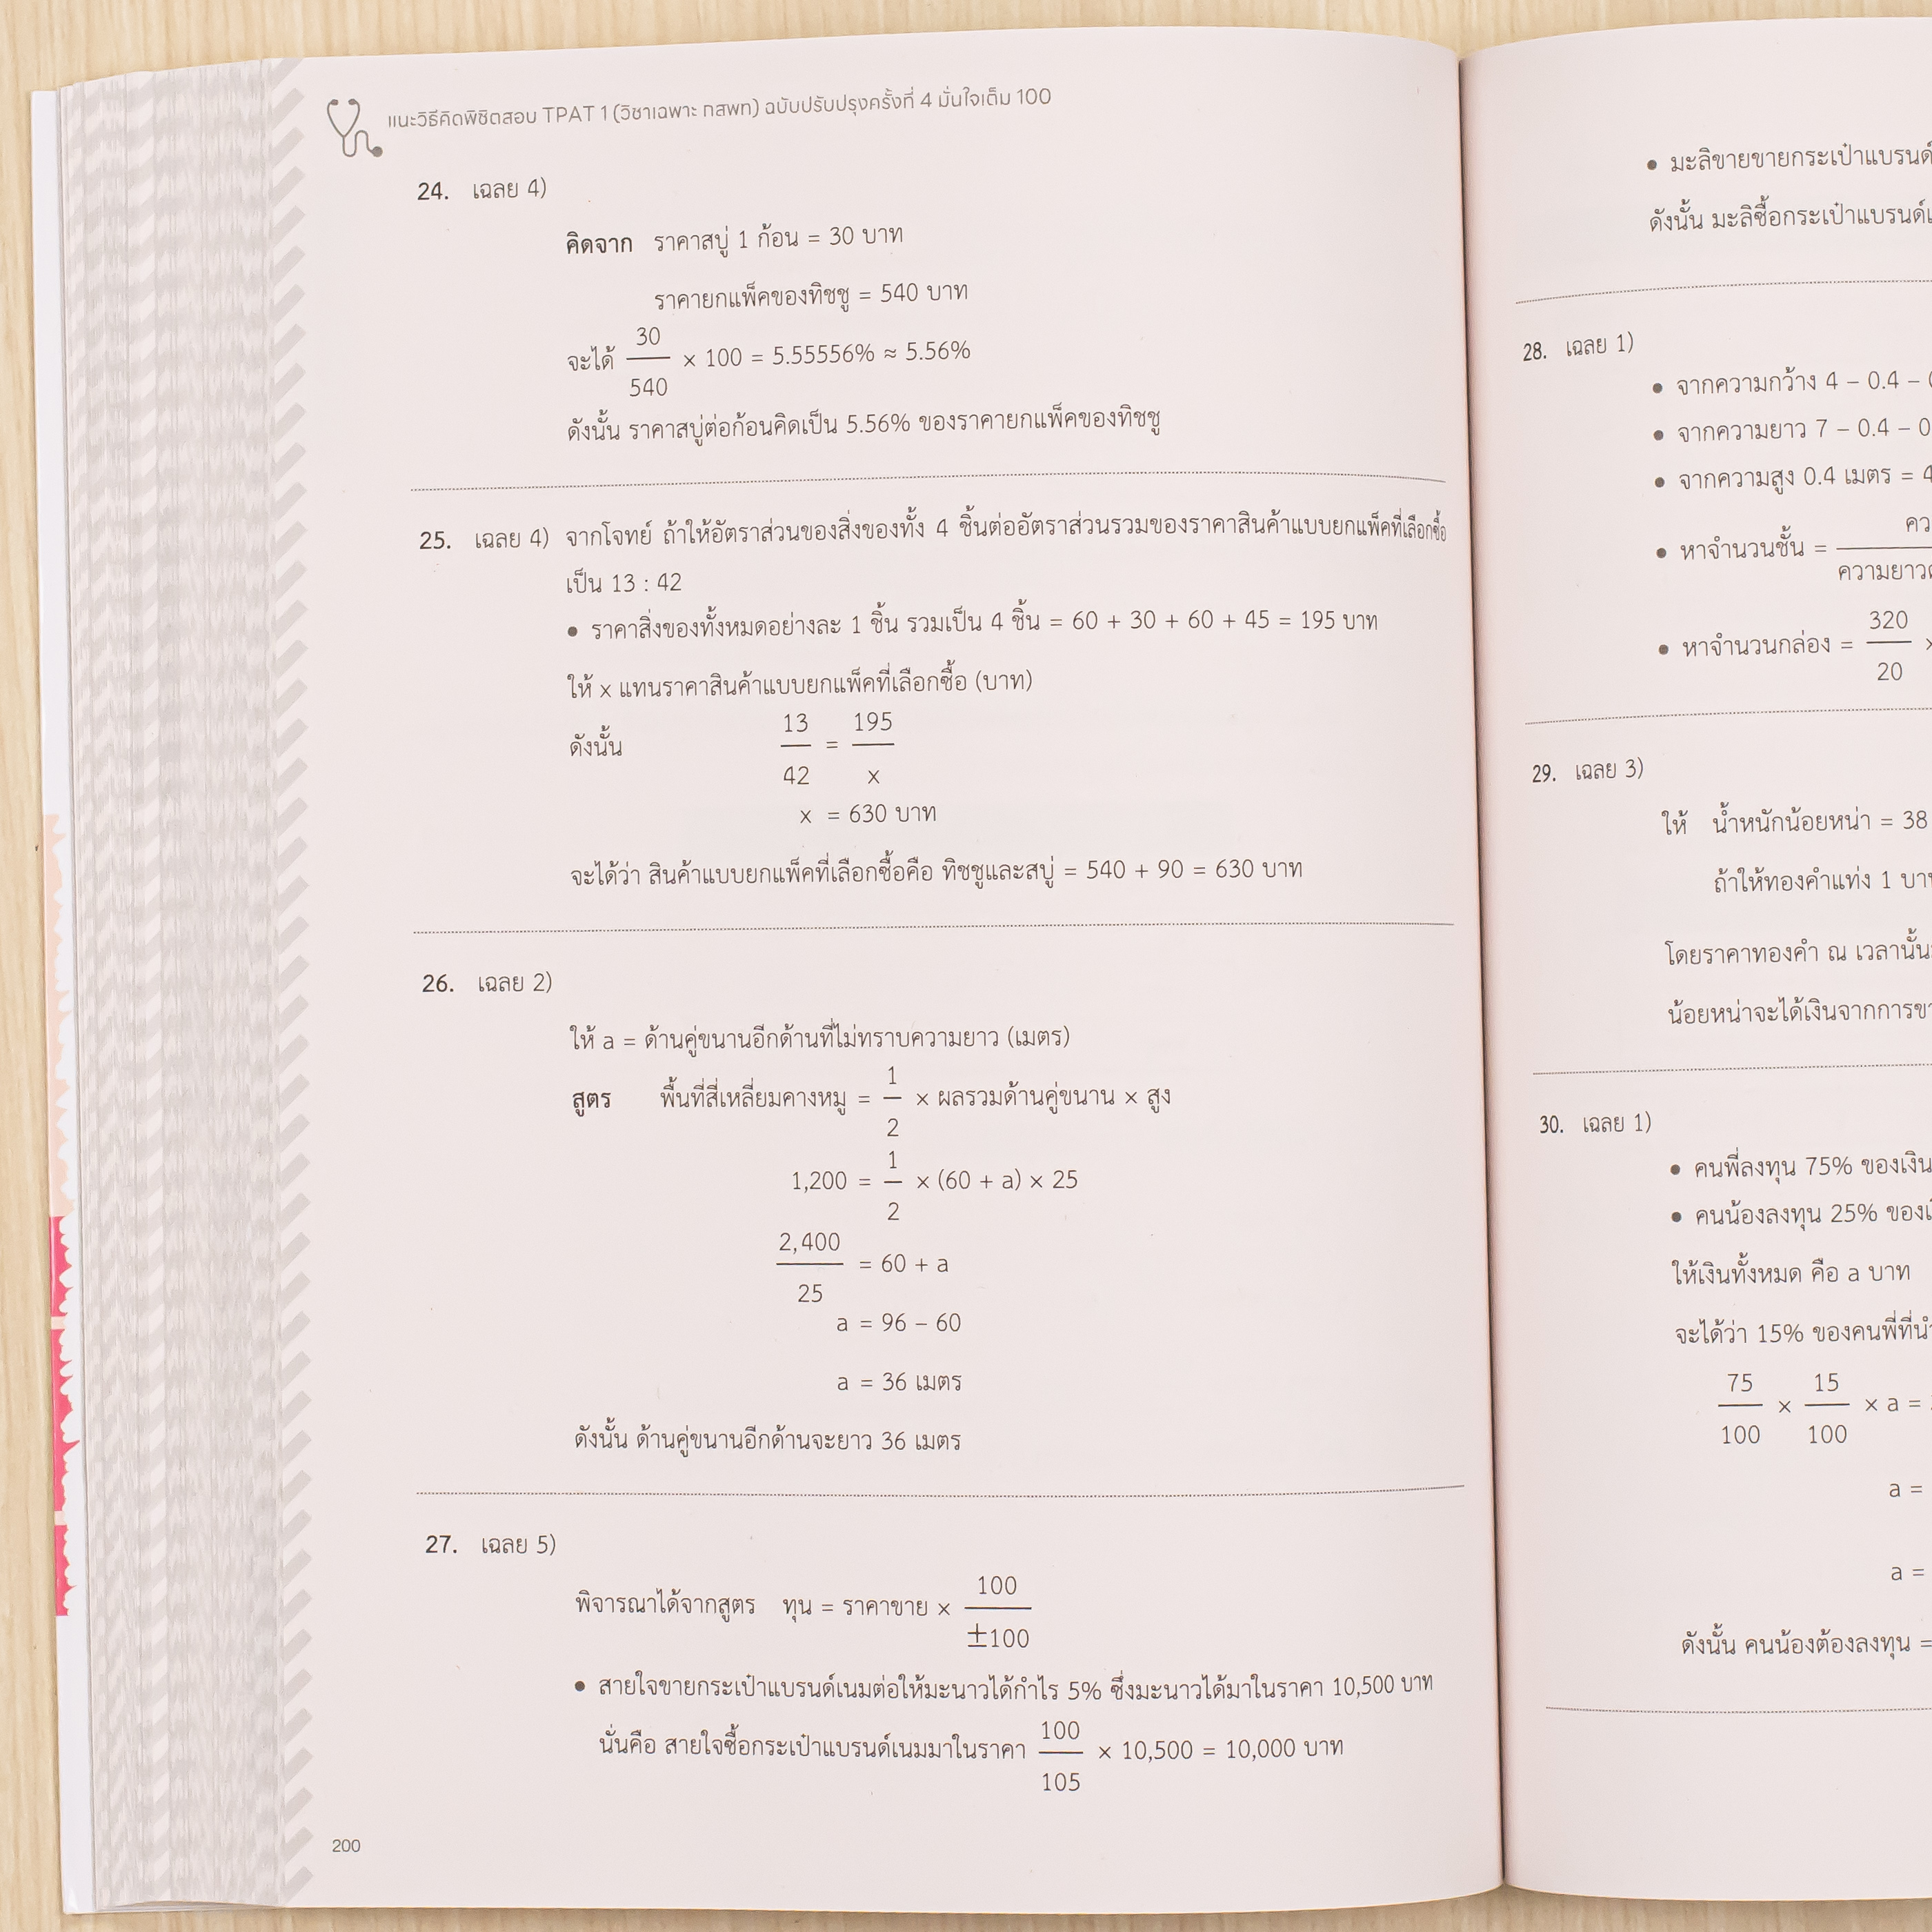 แนะวิธีคิดพิชิตสอบ TPAT 1 (วิชาเฉพาะ กสพท) ฉบับปรับปรุงครั้งที่ 4 มั่นใจเต็ม 100
24. เฉลย 4)
คิดจาก ราคาสบู่ 1 ก้อน = 30 บาท
ราคายกแพ็คของทิชชู = 540 บาท
จะได้ 30/540 × 100 = 5.55556% ≈ 5.56%
ดังนั้น ราคาสบู่ต่อก้อนคิดเป็น 5.56% ของราคายกแพ็คของทิชชู
25. เฉลย 4) จากโจทย์ ถ้าให้อัตราส่วนของสิ่งของทั้ง 4 ชิ้นต่ออัตราส่วนรวมของราคาสินค้าแบบยกแพ็คที่เลือกซื้อ
เป็น 13 : 42
• ราคาสิ่งของทั้งหมดอย่างละ 1 ชิ้น รวมเป็น 4 ชิ้น = 60 + 30 + 60 + 45 = 195 บาท
ให้ x แทนราคาสินค้าแบบยกแพ็คที่เลือกซื้อ (บาท)
ดังนั้น 13/42 = 195/x
x = 630 บาท
จะได้ว่า สินค้าแบบยกแพ็คที่เลือกซื้อคือ ทิชชูและสบู่ = 540 + 90 = 630 บาท
26. เฉลย 2)
ให้ a = ด้านคู่ขนานอีกด้านที่ไม่ทราบความยาว (เมตร)
สูตร พื้นที่สี่เหลี่ยมคางหมู = 1/2 × ผลรวมด้านคู่ขนาน × สูง
1,200 = 1/2 × (60 + a) × 25
2,400/25 = 60 + a
a = 96 – 60
a = 36 เมตร
ดังนั้น ด้านคู่ขนานอีกด้านจะยาว 36 เมตร
27. เฉลย 5)
พิจารณาได้จากสูตร ทุน = ราคาขาย × 100/±100
• สายใจขายกระเป๋าแบรนด์เนมต่อให้มะนาวได้กำไร 5% ซึ่งมะนาวได้มาในราคา 10,500 บาท
นั่นคือ สายใจซื้อกระเป๋าแบรนด์เนมมาในราคา 100/105 × 10,500 = 10,000 บาท
200
• มะลิขายขายกระเป๋าแบรนด์
ดังนั้น มะลิซื้อกระเป๋าแบรนด์เ
28. เฉลย 1)
• จากความกว้าง 4 – 0.4 –
• จากความยาว 7 – 0.4 – 0
• จากความสูง 0.4 เมตร = 4
• หาจำนวนชั้น = คว/ความยาว
• หาจำนวนกล่อง = 320/20 ×
29. เฉลย 3)
ให้ น้ำหนักน้อยหน่า = 38
ถ้าให้ทองคำแท่ง 1 บา
โดยราคาทองคำ ณ เวลานั้น
น้อยหน่าจะได้เงินจากการขา
30. เฉลย 1)
• คนพี่ลงทุน 75% ของเงิน
• คนน้องลงทุน 25% ของเ
ให้เงินทั้งหมด คือ a บาท
จะได้ว่า 15% ของคนพี่ที่นำ
75/100 × 15/100 × a =
a =
a =
ดังนั้น คนน้องต้องลงทุน =